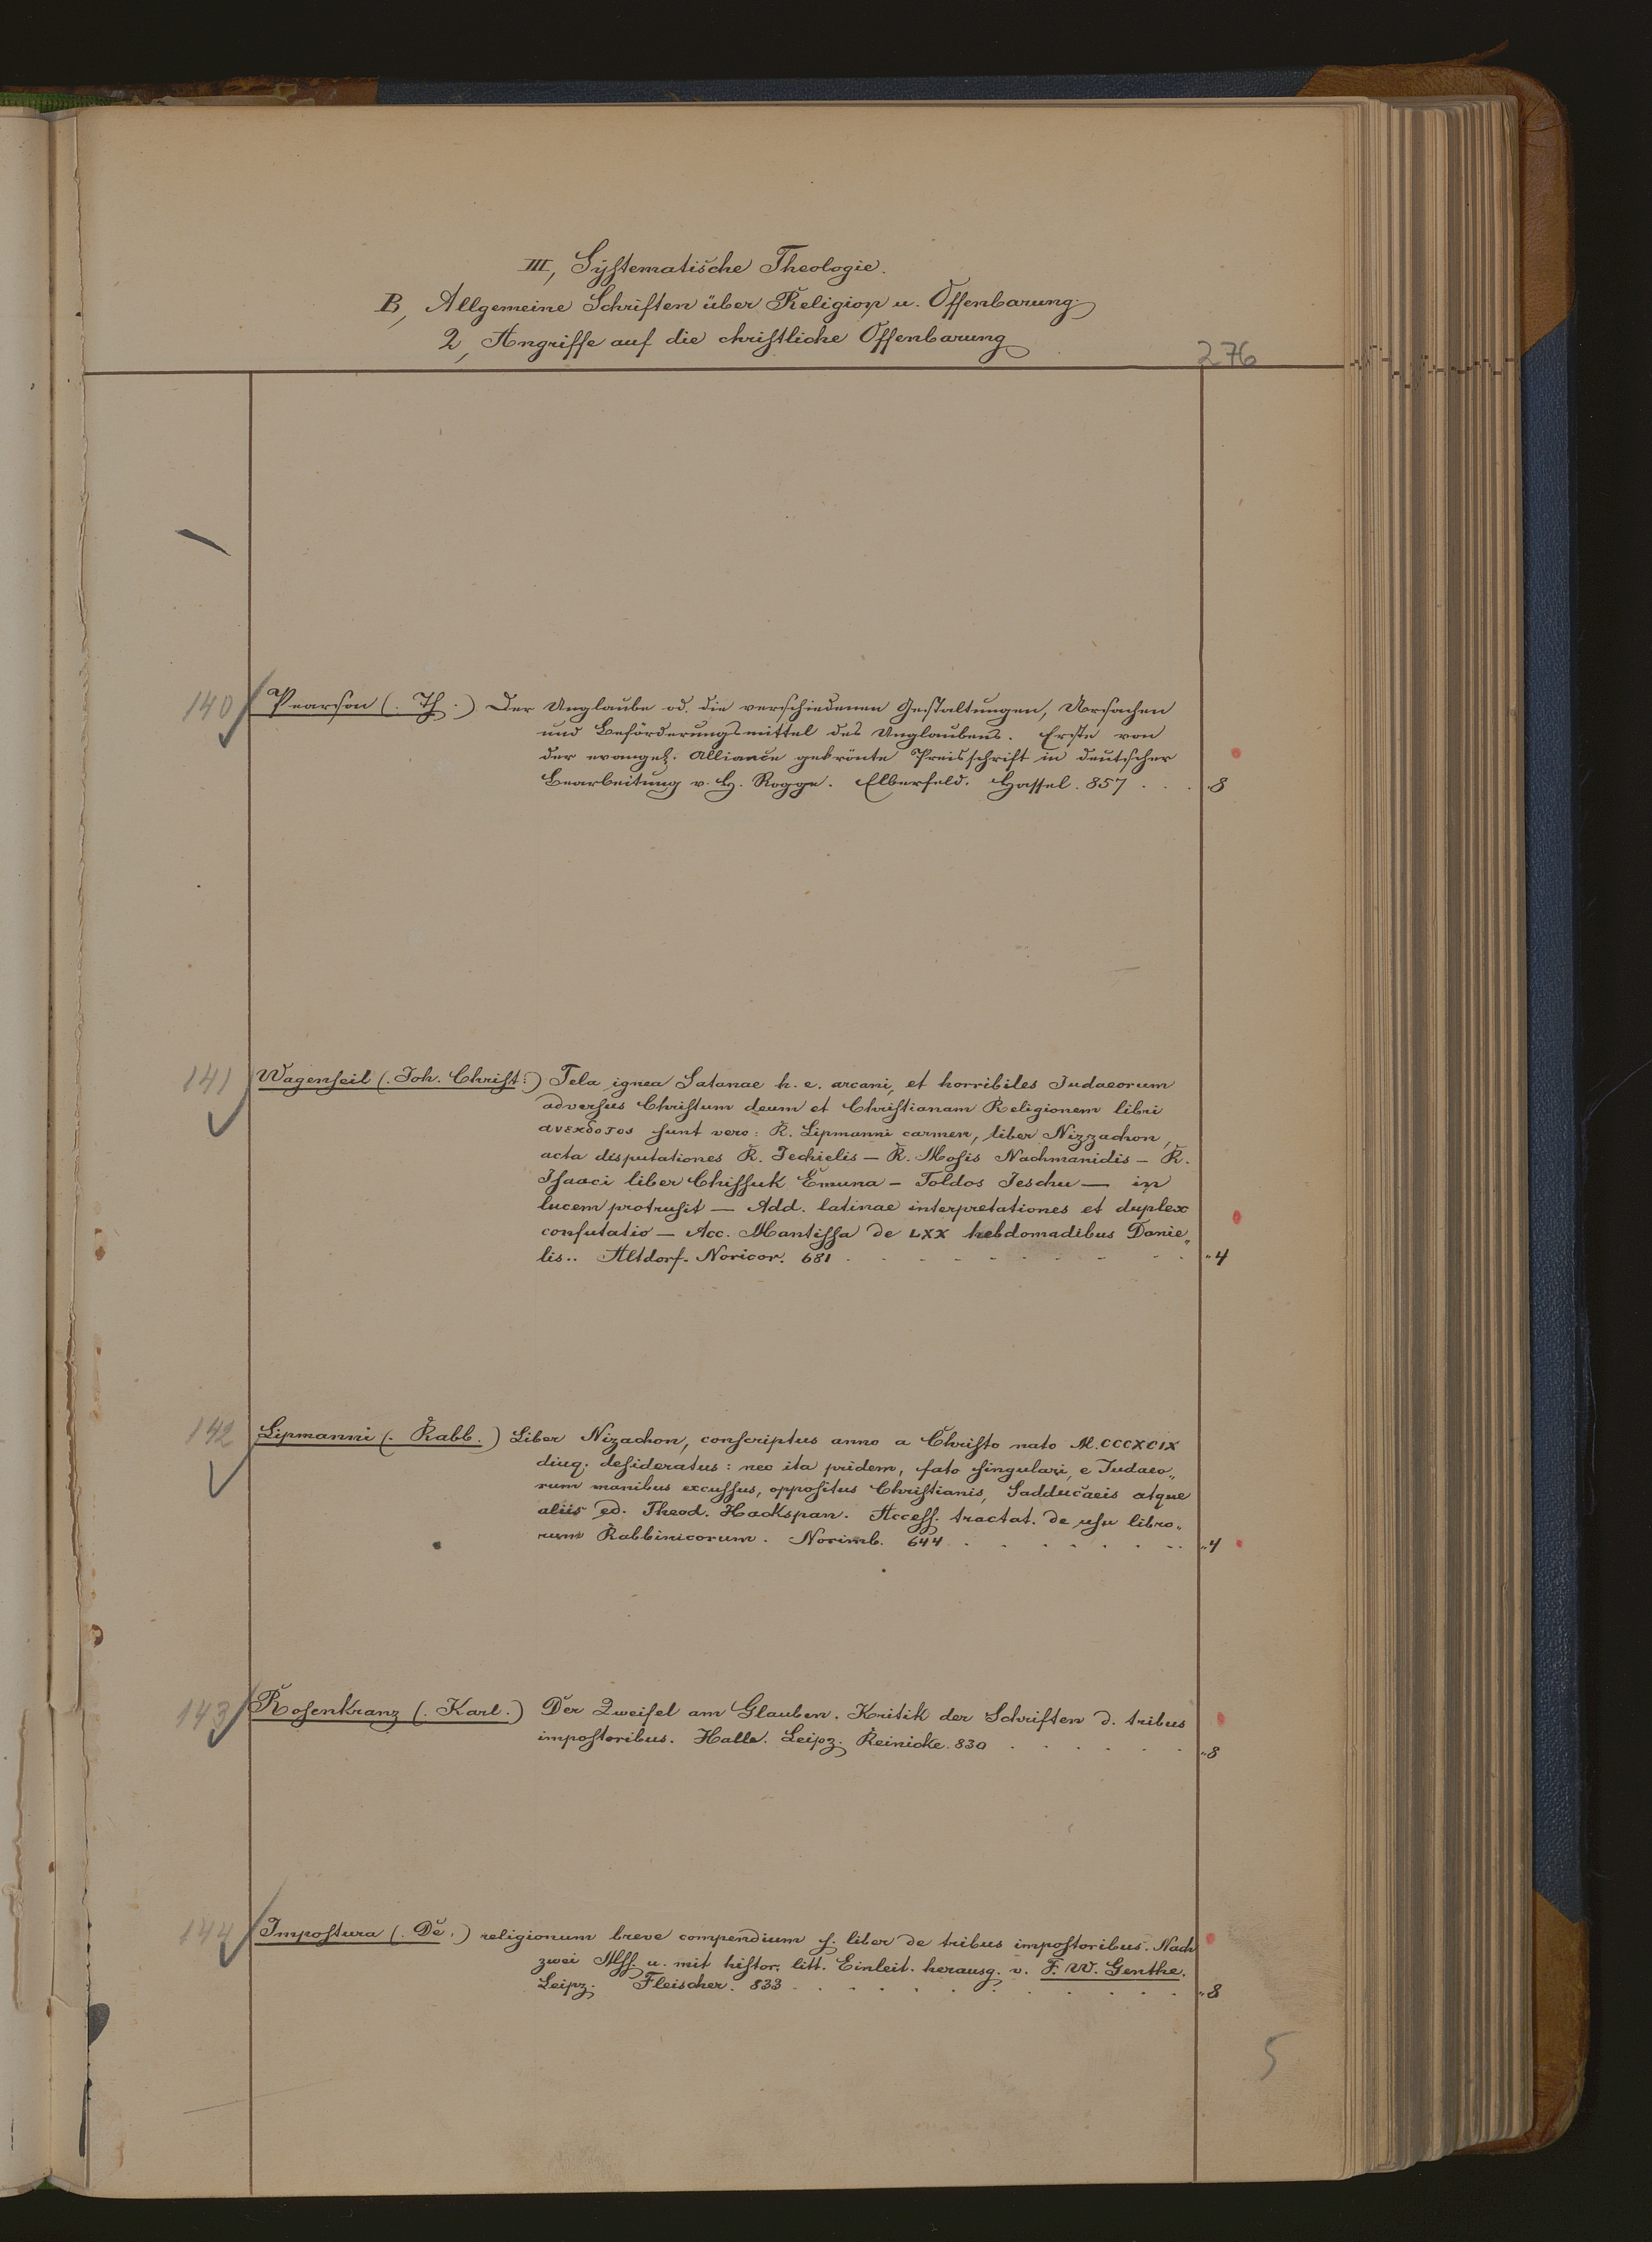 III, Systematische Theologie.
B, Allgemeine Schriften über Religion u. Offenbarung.
2, Angriffe auf die christliche Offenbarung
276
140 Pearson (. Th .) Der Unglaube od. die verschiedenen Gestaltungen, Ursachen
und Beförderungsmittel des Unglaubens. Erste von
der evangel. Alliance gekrönte Preisschrift in deutscher
Bearbeitung v. H. Rogge. Elberfeld. Hassel. 857 . . . 8
141 Wagenseil (. Joh. Christ:) Tela ignea Satanae h. e. arcani, et horribiles Judaeorum
adversus Christum deum et Christianam Religionem libri
ανεκδοτος sunt vero: R. Lipmanni carmen, liber Nizzachon,
acta disputationes R. Jechielis — R. Mosis Nachmanidis — R.
Isaaci liber Chissuk Emuna — Toldos Jeschu — in
lucem protrusit — Add. latinae interpretationes et duplex
confutatio — Acc. Mantissa de LXX hebdomadibus Danie„
lis.. Altdorf. Noricor. 681 . . . . . . . . . . „4
142 Lipmanni (. Rabb.) Liber Nizachon, conscriptus anno a Christo nato M.CCCXCIX
diuq. desideratus: nec ita pridem, fato singulari, e Judaeo„
rum manibus excussus, oppositus Christianis, Sadducaeis atque
aliis ed. Theod. Hackspan. Access. tractat. de usu libro„
rum Rabbinicorum. Norimb. 644 . . . . . . . . „4
143 Rosenkranz (. Karl.) Der Zweifel am Glauben. Kritik der Schriften d. tribus
impostoribus. Halle. Leipz. Reinicke. 830 . . . . . . „8
144 Impostura (. De .) religionum breve compendium s. liber de tribus impostoribus. Nach
zwei Mss. u. mit histor. litt. Einleit. herausg. v. F. W. Genthe.
Leipz. Fleischer. 833 . . . . . . . . . . „8
5